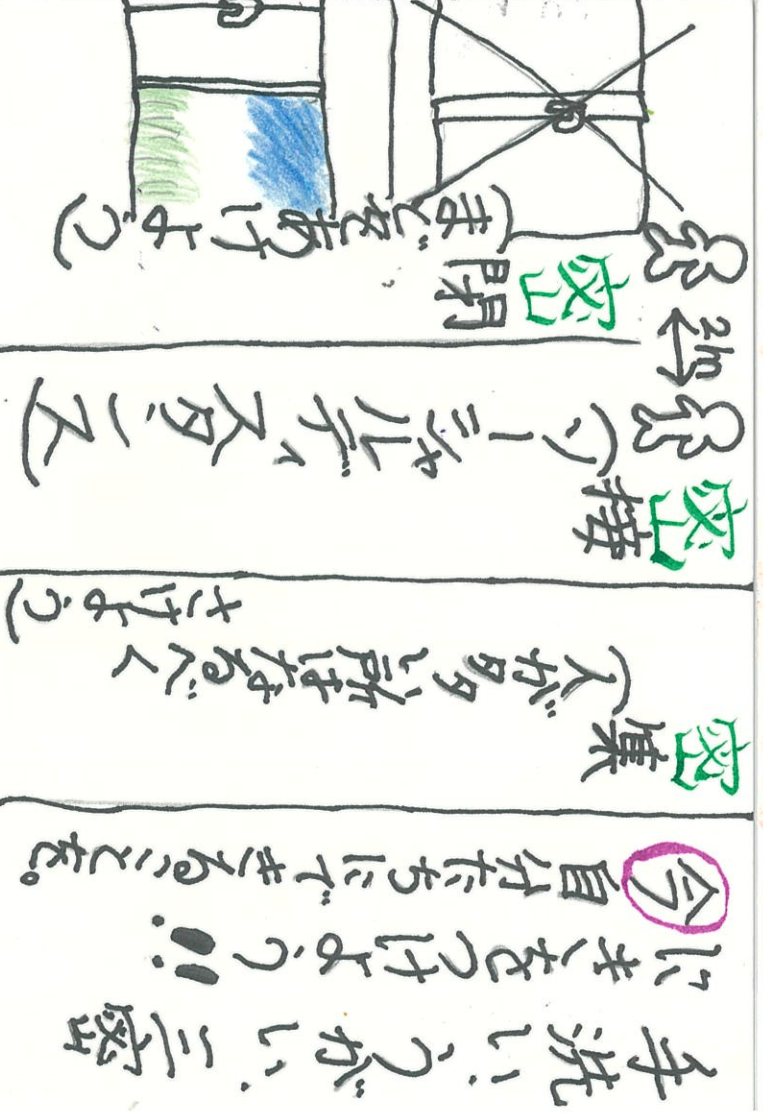 手洗い、うがい、三密
にきをつけよう!!
今自分たちにできることを。
密集
(人が多い所はなるべく
さけよう)
密接
(ソーシャルディスタンス)
2m
密閉
(まどをあけよう)